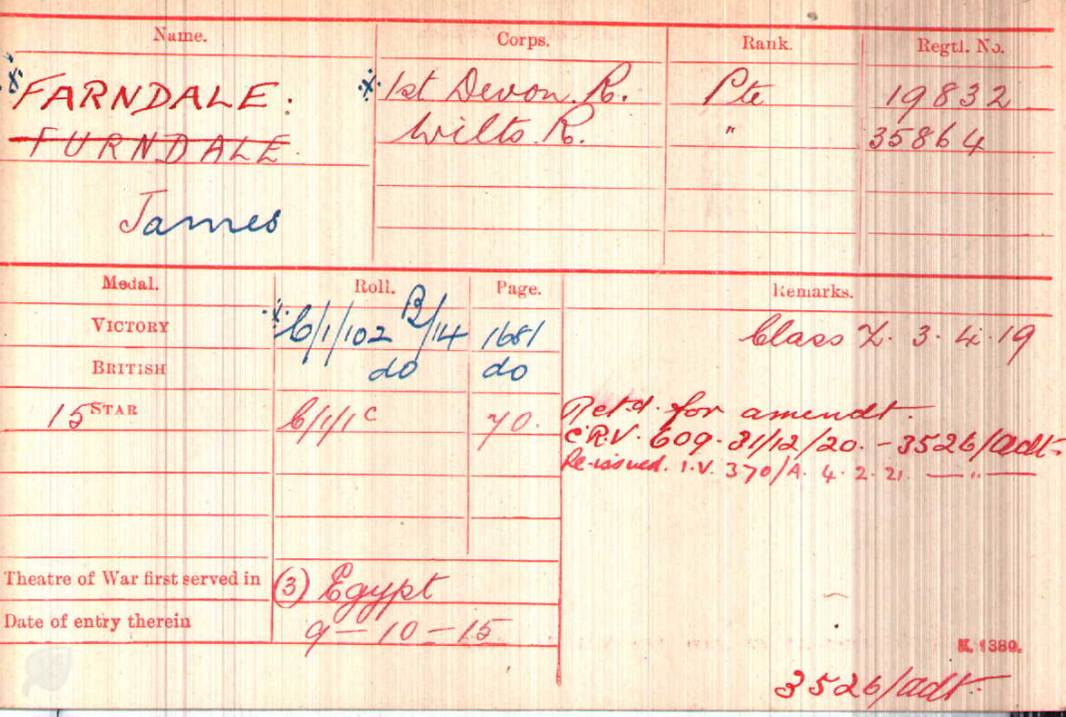 Name. Corps. Rank. Regtl. No.
FARNDALE. 1st Devon. R. Pte 19832
FURNDALE Wilts. R. " 35864
James
Medal. Roll. Page. Remarks.
VICTORY C/1/102 B/14 1681 Class Z. 3.4.19
BRITISH do do
15 STAR C/1/1 c 70. Retd. for amendt.
C.R.V. 609. 31/12/20. - 3526/Adt.
Re-issued. I.V. 370/A. 4.2.21. — " —
Theatre of War first served in (3) Egypt
Date of entry therein 9-10-15
K. 1380.
3526/Adt.